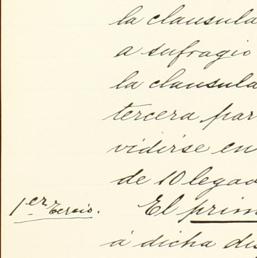 la clausula
a sufragio
la clausula
tercera par
vidirse en
de 10 legad
1er Tercio. El prim
á dicha dis